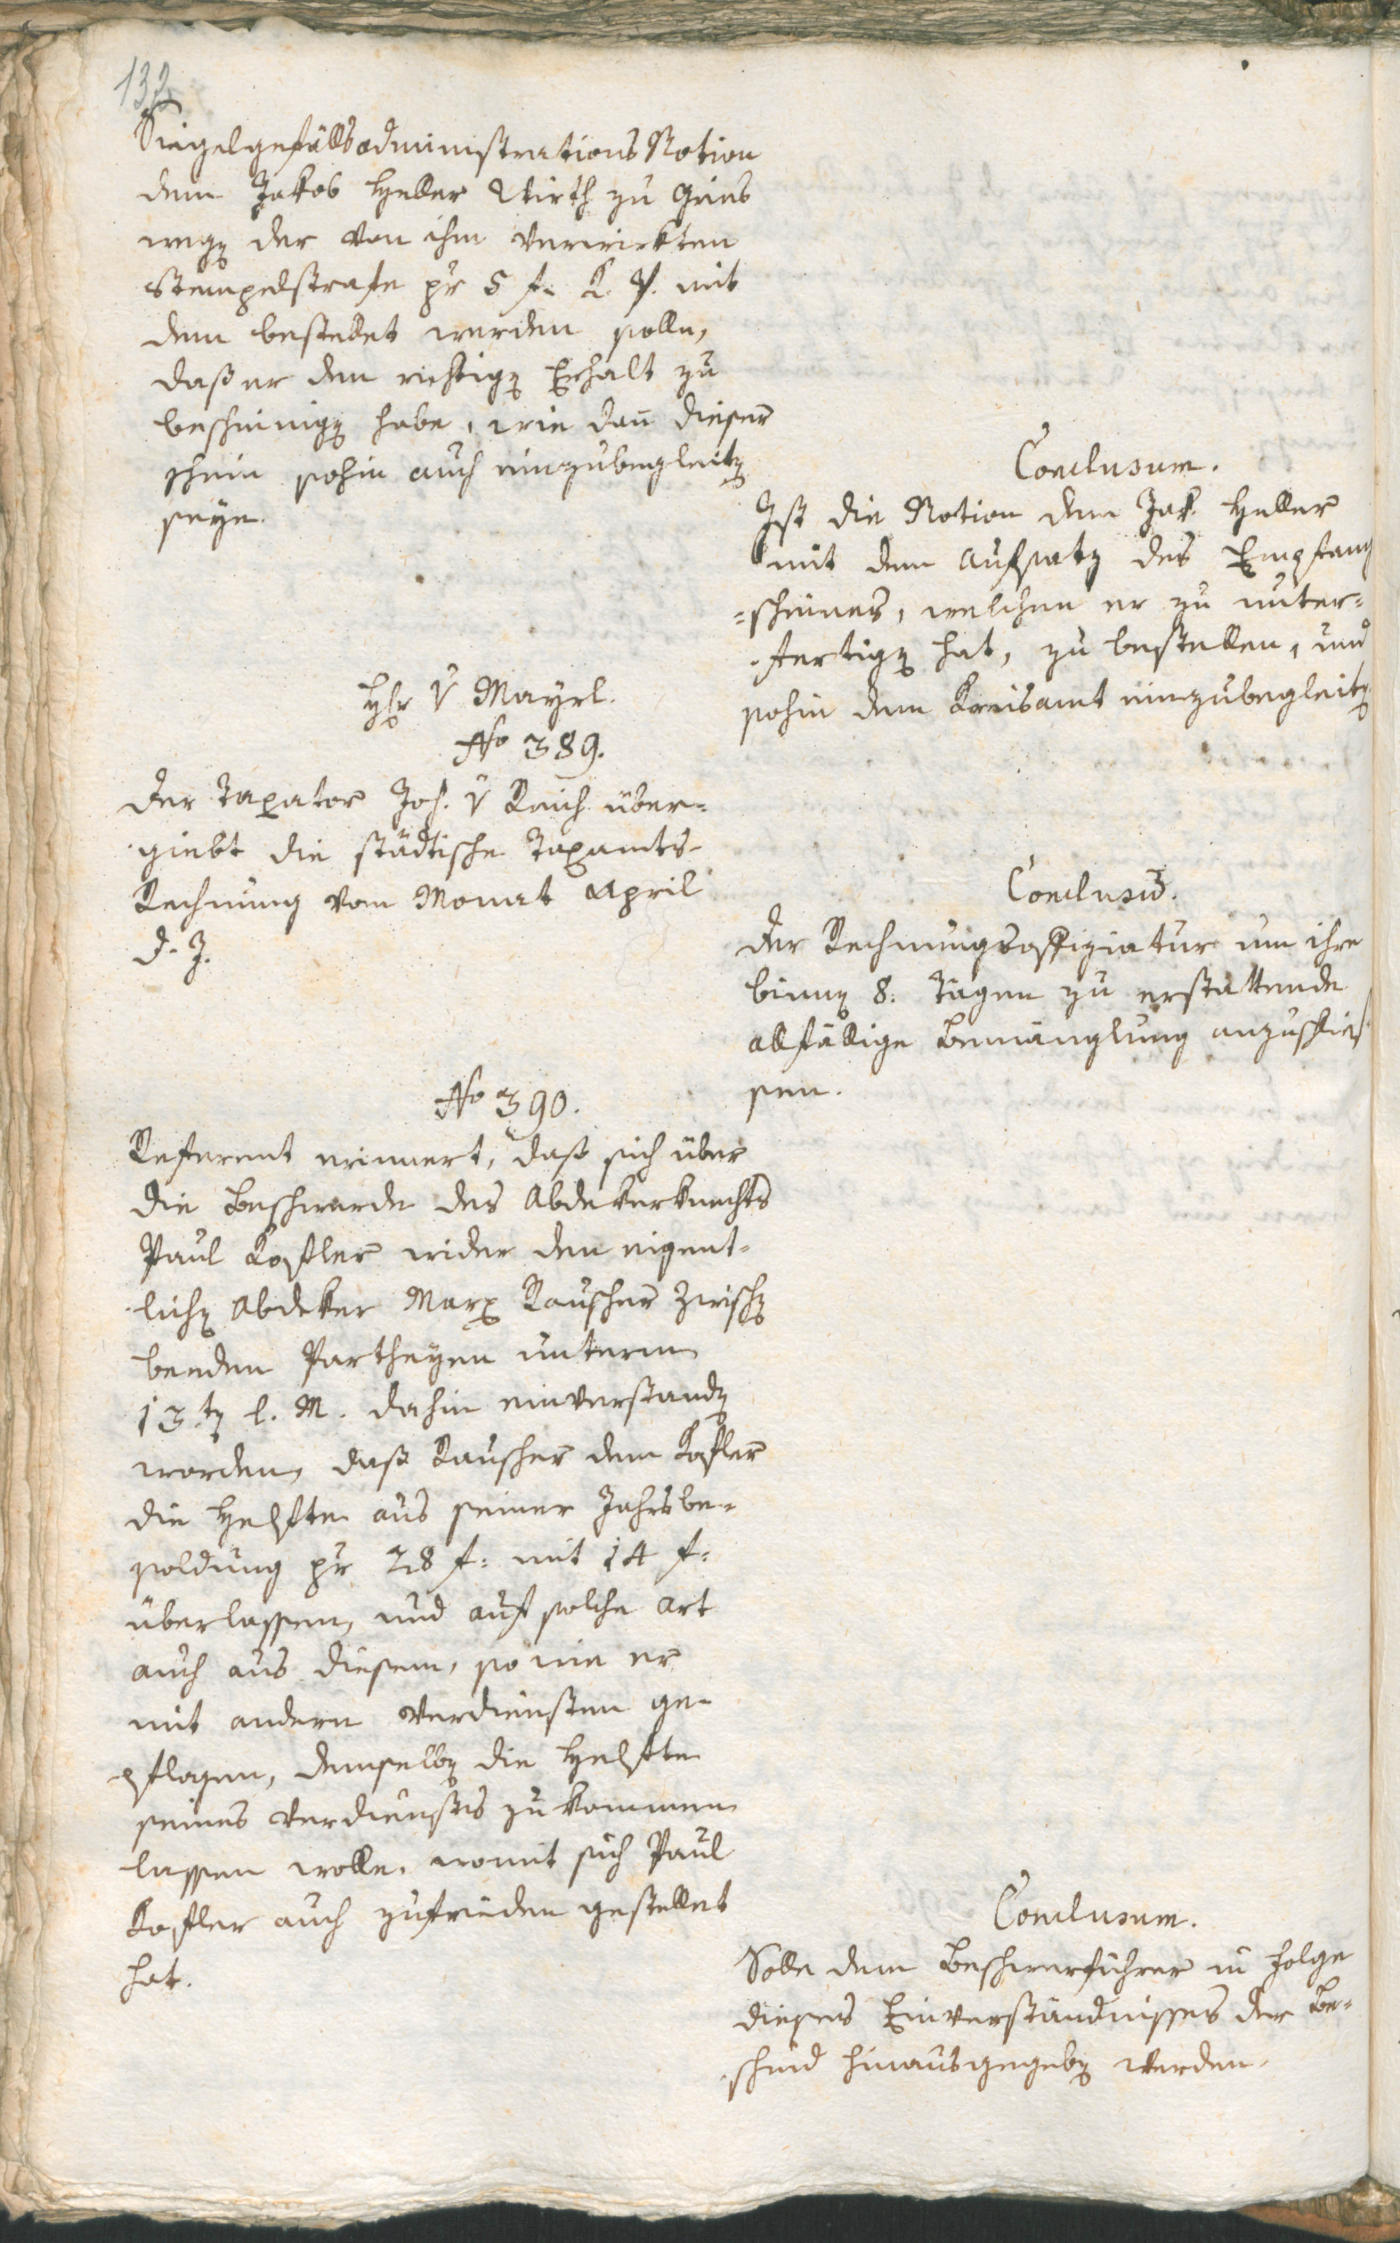 132
Siegelgefällsadministrations Notion
dem Jakob Heller Wirth zu Gries
wegen der von ihm verwirkten
Stempelstrafe pr 5 f. K. V. mit
dem bestellet werden solle,
daß er den richtigen Erhalt zu
bescheinigen habe, wie dan dieser
Schein sohin auch einzubegleiten
seye.
Conclusum.
Ist die Notion dem Jak. Heller
mit dem Aufsatz des Empfang
=scheines, welchen er zu unter=
fertigen hat, zu bestellen, und
sohin dem Kreisamt einzubegleiten
Hr v Mayrl.
No 389.
Der Taxator Jos. v Reich über=
giebt die städtische Taxamts-
Rechnung vom Monat April
d. J.
Conclusum.
Der Rechnungsoffiziatur um ihre
binnen 8. Tägen zu erstattende
allfällige Bemänglung anzuschlies
sen.
No 390.
Referent erinnert, daß sich über
die Beschwerde des Abdekerknechts
Paul Kofler wider den eigent=
lichen Abdeker Marx Rauscher zwischen
beeden Partheyen unterm
13ten l. M. dahin einverstanden
worden, daß Rauscher dem Kofler
die Helfte aus seiner Jahrsbe=
soldung pr 28 f: mit 14 f:
überlassen, und auf solche Art
auch aus diesem, so wie er
mit andern Verdiensten ge=
pflogen, demselben die Helfte
seines Verdienstes zukommen
lassen wolle. womit sich Paul
Kofler auch zufrieden gestellet
hat.
Conclusum.
Solle dem Beschwerführer in Folge
dieses Einverständnisses der Be=
scheid hinausgegeben werden.